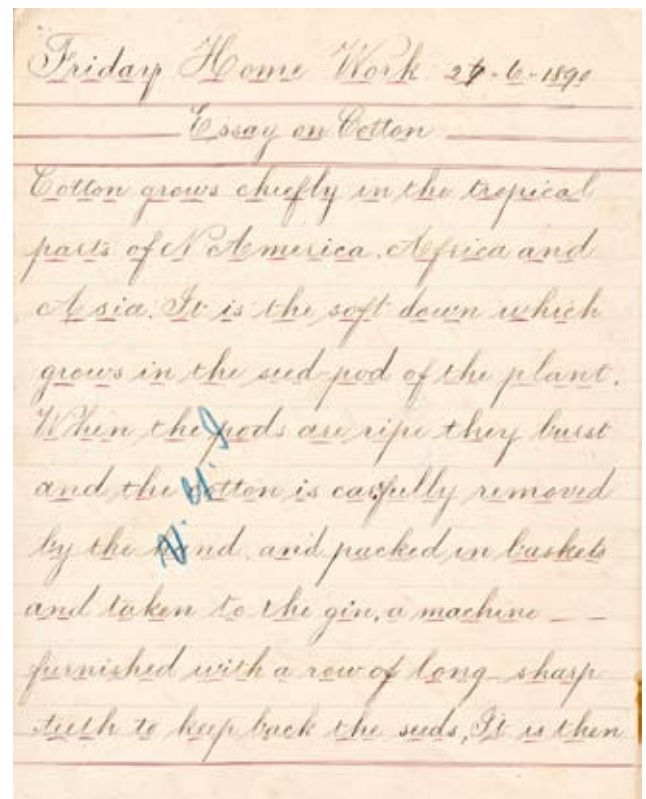 Friday Home Work 27-6-1890
Essay on Cotton
Cotton grows chiefly in the tropical
parts of N America. Africa and
Asia. It is the soft down which
grows in the seed-pod of the plant.
When the pods are ripe they burst
and the cotton is carfully removed
by the hand. and packed in baskets
and taken to the gin, a machine
furnished with a row of long sharp
teeth to keep back the seeds, It is then